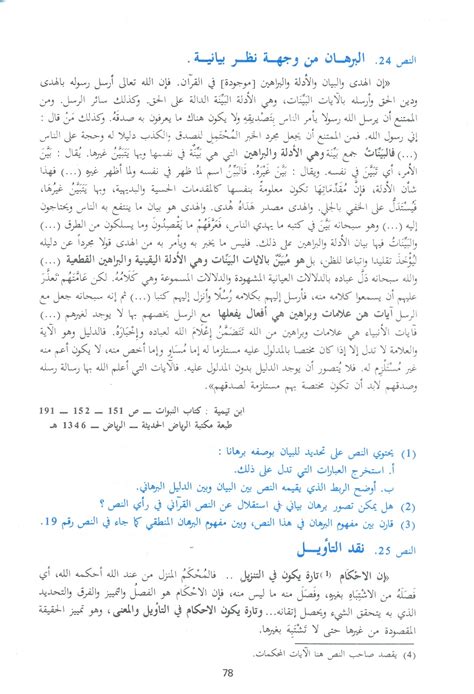 النص 24. البرهـان من وجهـة نظـر بيانيـة.
«إن الهدى والبيان والأدلة والبراهين [موجودة] في القرآن. فإن الله تعالى أرسل رسوله بالهدى
ودين الحق وأرسله بالآيات البَيِّنات، وهي الأدلة البَيِّنة الدالة على الحق. وكذلك سائر الرسل. ومن
الممتنع أن يرسل الله رسولا يأمر الناس بتصديقه ولا يكون هناك ما يعرفون به صدقَهُ. وكذلك مَنْ قال :
إني رسول الله. فمن الممتنع أن يجعل مجرد الخبر المُحْتَمِل للصدق والكذب دليلا له وحجة على الناس
(...) فالبَيِّناتُ جمع بَيِّنة وهي الأدلة والبراهين التي هي بَيِّنة في نفسها وبها يَتَبَيَّنُ غيرها. يُقال : بَيَّنَ
الأمر، أي تَبَيَّنَ في نفسه. ويقال : بَيَّنَ غيرهُ. فالبَيِّنة اسم لما ظهر في نفسه ولما أظهر غيره (...) فهذا
شأن الأدلة، فإن مُقَدِّمَاتِهَا تكون معلومةً بنفسها كالمقدمات الحسية والبديهية، وبها يَتَبَيَّنُ غَيْرُهَا،
فيُسْتَدَلُّ على الخفي بالجلي. والهدى مصدر هَدَاهُ هُدى. والهدى هو بيان ما ينتفع به الناس ويحتاجون
إليه (...) وهو سبحانه بَيَّنَ في كتبه ما يهدي الناس، فَعَرَّفَهُمْ ما يَقْصِدُونَ وما يسلكون من الطرق (...)
والبَيِّنَاتُ فيها بيان الأدلة والبراهين على ذلك. فليس ما يخبر به ويأمر به من الهدى قولا مجردًا عن دليله
لِيُؤْخَذَ تقليدا واتباعا للظن، بل هو مُبَيَّنٌ بالآيات البَيِّنات وهي الأدلة اليقينية والبراهين القطعية (...)
والله سبحانه دَلَّ عباده بالدلالات العيانية المشهودة والدلالات المسموعة وهي كَلَامُهُ. لكن عَامَّتُهُم تَعَذَّر
عليهم أن يسمعوا كلامه منه، فأرسل إليهم بكلامه رُسُلًا وأنزل إليهم كتبا (...) ثم إنه سبحانه جعل مع
الرسل آيات هن علامات وبراهين هي أفعال يفعلها مع الرسل يخصهم بها لا يوجد لغيرهم (...)
فآيات الأنبياء هي علامات وبراهين من الله تَتَضَمَّنُ إِعْلَامَ الله لعباده وإِخْبَارَهُ. فالدليل وهو الآية
والعلامة لا تدل إلا إذا كان مختصا بالمدلول عليه مستلزما له إما مُسَاوٍ وإما أخص منه، لا يكون أعم منه
غير مُسْتَلْزِم له. فلا يُتصور أن يوجد الدليل بدون المدلول عليه. فالآيات التي أعلم الله بها رسالة رسله
وصدقهم لابد أن تكون مختصة بهم مستلزمة لصدقهم».
ابن تيمية : كتاب النبوات – ص 151 – 152 – 191
طبعة مكتبة الرياض الحديثة – الرياض – 1346 هـ
(1) يحتوي النص على تحديد للبيان بوصفه برهانا :
أ. استخرج العبارات التي تدل على ذلك.
ب. أوضح الربط الذي يقيمه النص بين البيان وبين الدليل البرهاني.
(2) هل يمكن تصور برهان بياني في استقلال عن النص القرآني في رأي النص ؟
(3) قارن بين مفهوم البرهان في هذا النص، وبين مفهوم البرهان المنطقي كما جاء في النص رقم 19.
النص 25. نقد التأويـل
«إن الاحْكَام (4) تارة يكون في التنزيل .. فالمُحْكَمُ المنزل من عند الله أحكمه الله، أي
فَصَلَهُ من الاشْتِبَاهِ بغيره، وفَصَلَ منه ما ليس منه، فإن الإحكام هو الفصل والتمييز والفرق والتحديد
الذي به يتحقق الشيء ويحصل إتقانه... وتارة يكون الاحكام في التأويل والمعنى، وهو تمييز الحقيقة
المقصودة من غيرها حتى لا تَشْتَبِهَ بغيرها.
(4) يقصد صاحب النص هنا الآيات المحكمات.
78